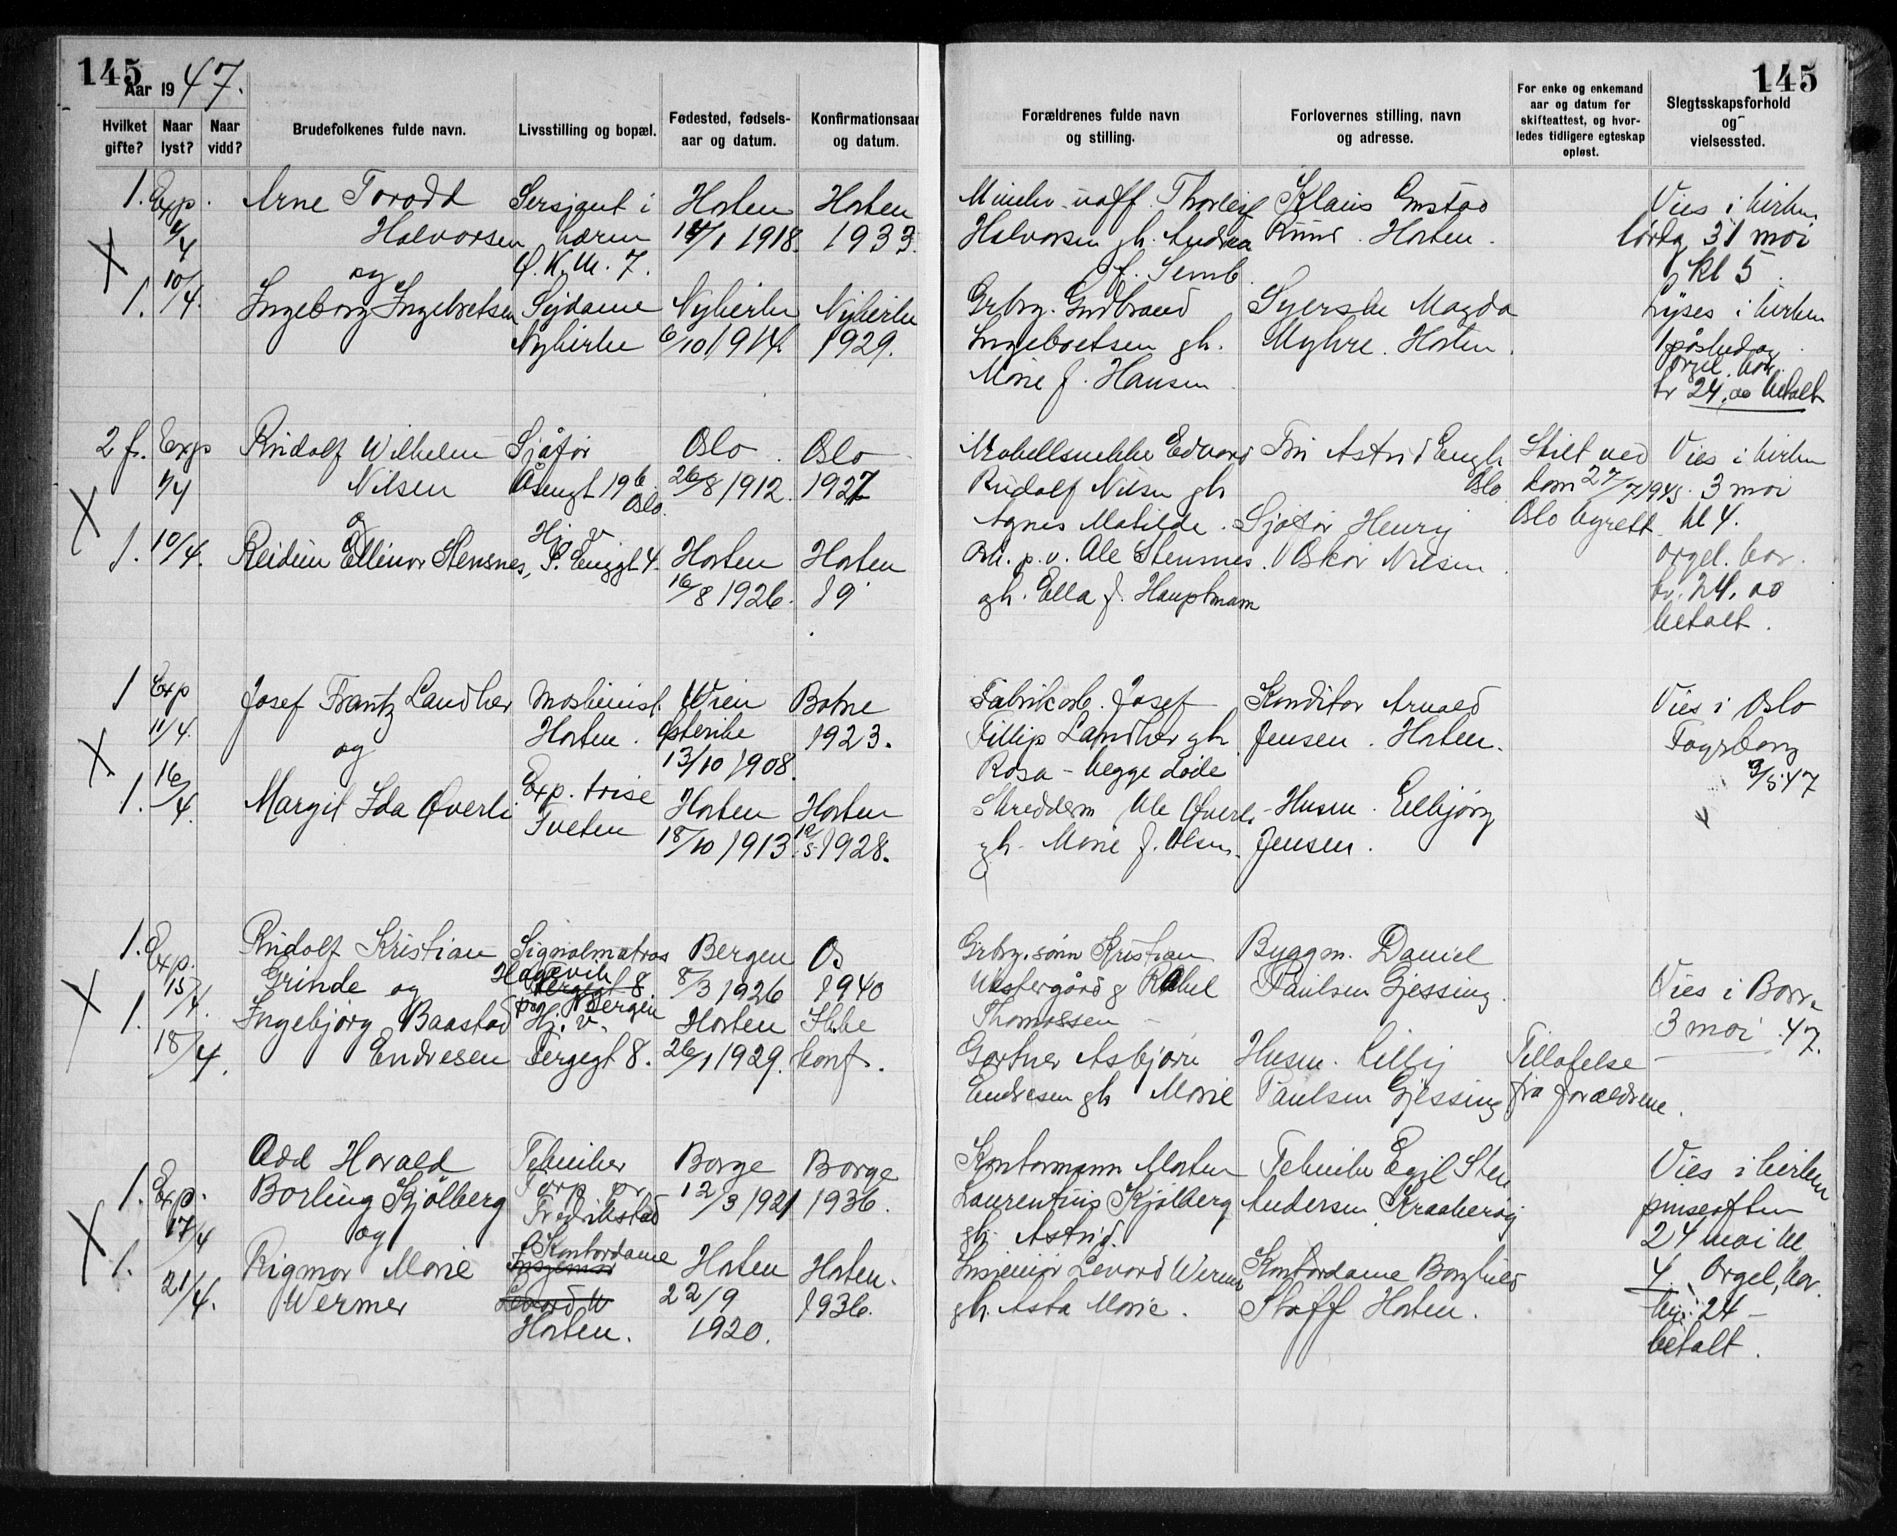 145
Aar 1947.
Hvilket gifte?
Naar lyst?
Naar vidd?
Brudefolkenes fulde navn.
Livsstilling og bopæl.
Fødested, fødsels-
aar og datum.
Konfirmationsaar
og datum.
1. Exp. Arne Torodd Sersjant i Horten Horten
4 Halvorsen hæren 1/1 1918. 1933.
og
1. 10/4. Ingeborg Ingebretsen Sydame Nykirke Nykirke
Nykirke 6/10 1914. 1929.
2 f. Exp Rudolf Wilhelm Sjåfør Oslo Oslo
9/4 Nilsen 196 26/8 1912. 1927
og Oslo.
1. 10/4. Reidun Ellinor Stensnes, Horten Horten
16/8 1926. 19
1 Exp Josef Frantz Landher Maskinist Wien Botne
11/4 og Horten. Østerike 1923.
13/10 1908.
1. 16/4. Margit Ida Øverli Exp. trise Horten Horten
Tveten 18/10 1913. 1928.
1. Exp. Rudolf Kristian Signalmatros Bergen Os
15/4. Grinde og Hagavik 8/3 1926 1940
Bergen
1. Ingebjørg Baastad Hj. v. Horten Ikke
18/4. Endresen 8. 26/1 1929. konf.
Odd Harald Tekniker Borge Borge
1. Exp. Borling Kjølberg Torp pr 12/3 1921 1936.
17/4 og Fredrikstad
1. Rigmor Marie Kontordame Horten Horten.
21/4. Wermer 22/9 1936.
Horten. 1920.
145
Forældrenes fulde navn
og stilling.
Forlovernes stilling, navn
og adresse.
For enke og enkemand
aar og datum for
skifteattest, og hvor-
ledes tidligere egteskap
opløst.
Slegtsskapsforhold
og
vielsessted.
Thorleif Klaus Enstad Vies i kirken
Halvorsen gh. Andrea Horten. 31 mai
f. Semb. kl 5
Grbr. Gudbrand Syerske Magda Lyses i kirken
Ingebretsen gh. Myhre. Horten.
Marie f. Hansen orgel.
kr 24,00 betalt
Edvard Astrid Engh Skilt ved Vies i kirken
Rudolf Nilsen gh Oslo kom 27/7 1945. 3 mai
Agnes Matilde. Sjåfør Henry Oslo byrett kl 4.
Ole Stensnes. Oskar Nilsen orgel.
gh. Ella f. Hauptmann kr. 24,00
betalt.
Fabrikarb. Josef Konditor Arnold Vies i Oslo
Fillip Landher gh Jensen. Horten. Fagerborg
Rosa - begge døde 9/5 47
Skredderm Ole Øverli Husm. Eilbjørg
gh. Marie f. Olsen. Jensen.
Grbr. sønn Kristian Byggm. Daniel
Westergård & Rakel Paulsen Gjessing. Vies i Borre
Thomassen 3 mai 47.
Gartner Asbjørn Husm. Lilly Tillatelse
Endresen gh Marie Paulsen Gjessing fra foreldrene.
Kontormann Morten Tekniker Egil Sten Vies i kirken
Laurentius Kjølberg Andersen pinseaften
gh. Astrid. 24 mai kl
Ingeniør Levard Wermer Kontordame Borghild 4. Orgel, kor.
gh. Asta Marie. Staff Horten. kr. 24 -
betalt.